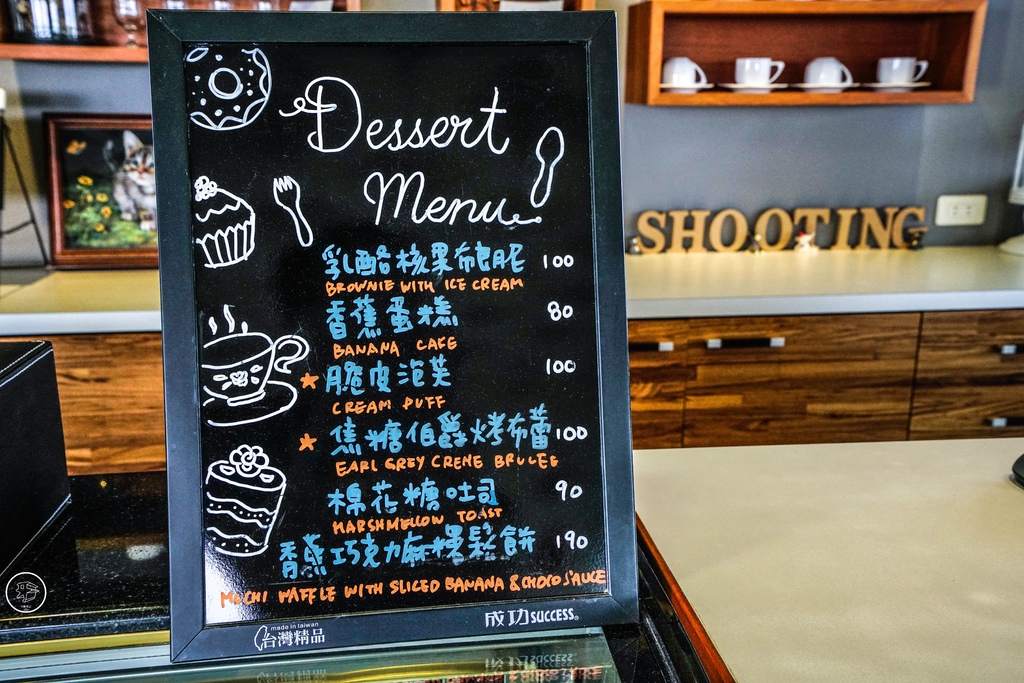 Dessert
Menu
SHOOTING
乳酪核果布朗尼 100
BROWNIE WITH ICE CREAM
香蕉蛋糕 80
BANANA CAKE
脆皮泡芙 100
CREAM PUFF
焦糖伯爵烤布蕾 100
EARL GREY CREME BRULEE
棉花糖吐司 90
MARSHMELLOW TOAST
香蕉巧克力麻糬鬆餅 190
MOCHI WAFFLE WITH SLICED BANANA & CHOCO SAUCE
made in taiwan
台灣精品
成功SUCCESS®